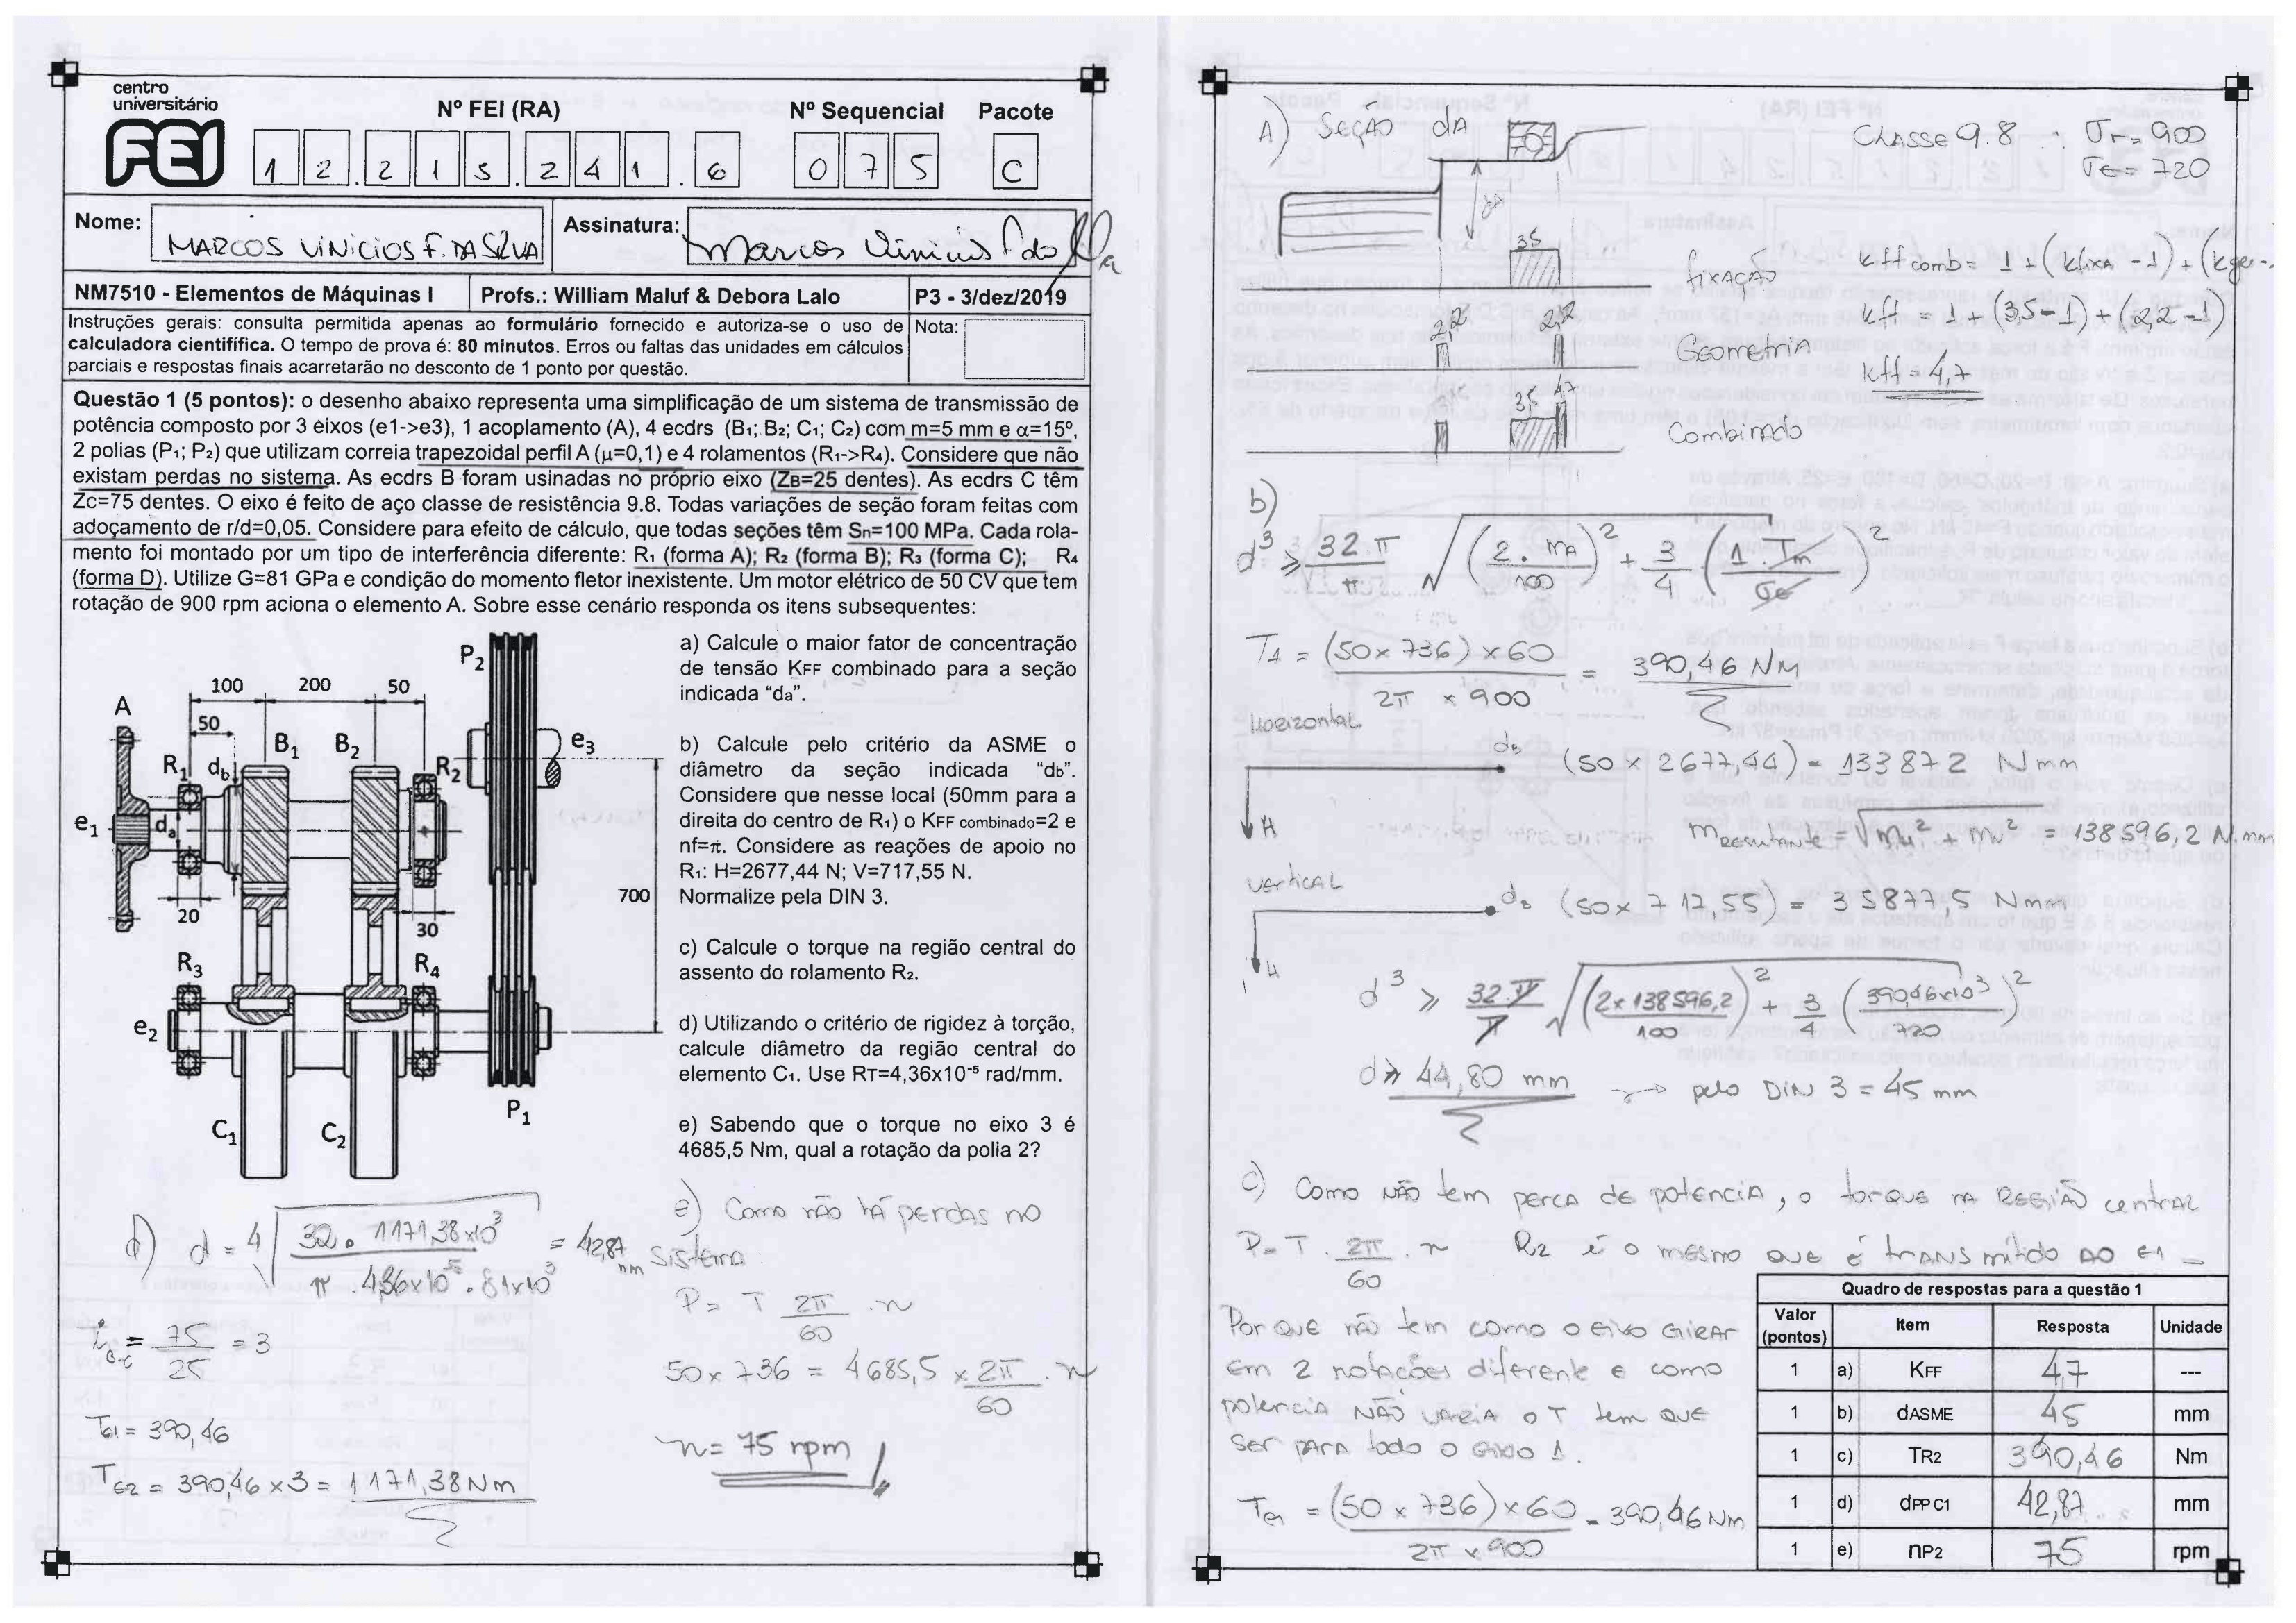 centro
universitário
FEI
Nº FEI (RA)
Nº Sequencial
Pacote
1 2 . 2 1 5 . 2 4 1 . 6
0 7 5
C
Nome:
MARCOS VINICIOS F. DA SILVA
Assinatura:
Marcos Vinicius F da Silva
NM7510 - Elementos de Máquinas I
Profs.: William Maluf & Debora Lalo
P3 - 3/dez/2019
Instruções gerais: consulta permitida apenas ao formulário fornecido e autoriza-se o uso de
calculadora cientifífica. O tempo de prova é: 80 minutos. Erros ou faltas das unidades em cálculos
parciais e respostas finais acarretarão no desconto de 1 ponto por questão.
Nota:
Questão 1 (5 pontos): o desenho abaixo representa uma simplificação de um sistema de transmissão de
potência composto por 3 eixos (e1->e3), 1 acoplamento (A), 4 ecdrs (B1; B2; C1; C2) com m=5 mm e α=15º,
2 polias (P1; P2) que utilizam correia trapezoidal perfil A (μ=0,1) e 4 rolamentos (R1->R4). Considere que não
existam perdas no sistema. As ecdrs B foram usinadas no próprio eixo (ZB=25 dentes). As ecdrs C têm
Zc=75 dentes. O eixo é feito de aço classe de resistência 9.8. Todas variações de seção foram feitas com
adoçamento de r/d=0,05. Considere para efeito de cálculo, que todas seções têm Sn=100 MPa. Cada rola-
mento foi montado por um tipo de interferência diferente: R1 (forma A); R2 (forma B); R3 (forma C); R4
(forma D). Utilize G=81 GPa e condição do momento fletor inexistente. Um motor elétrico de 50 CV que tem
rotação de 900 rpm aciona o elemento A. Sobre esse cenário responda os itens subsequentes:
P2
100 200 50
A
50
B1 B2
e3
R1 db
R2
e1
da
20
30
700
R3
R4
e2
P1
C1
C2
a) Calcule o maior fator de concentração
de tensão KFF combinado para a seção
indicada “da”.
b) Calcule pelo critério da ASME o
diâmetro da seção indicada “db”.
Considere que nesse local (50mm para a
direita do centro de R1) o KFF combinado=2 e
nf=π. Considere as reações de apoio no
R1: H=2677,44 N; V=717,55 N.
Normalize pela DIN 3.
c) Calcule o torque na região central do
assento do rolamento R2.
d) Utilizando o critério de rigidez à torção,
calcule diâmetro da região central do
elemento C1. Use RT=4,36x10-5 rad/mm.
e) Sabendo que o torque no eixo 3 é
4685,5 Nm, qual a rotação da polia 2?
d) d = 4√ 32 . 1171,38x10³ / π . 4,36x10-5 . 81x10³ = 42,87 mm
iB-C = 75/25 = 3
Te1 = 390,46
Te2 = 390,46 x 3 = 1171,38 Nm
e) Como não há perdas no
sistema:
P = T 2π/60 . n
50 x 736 = 4685,5 x 2π/60 . n
n = 75 rpm
A) SEÇÃO dA
dA
CLASSE 9.8 ∴ σr = 900
σe = 720
3,5
fixAÇÃO
kff comb = 1 + (kfixA - 1) + (kgeo-
2,2 2,2
kff = 1 + (3,5 - 1) + (2,2 - 1)
GEOMETRIA
kff = 4,7
3,5 4,7
Combinado
b)
d³ ≥ 32.π/π √(2 . mA/100)² + 3/4 (1 . Tm/σe)²
T1 = (50 x 736) x 60 / 2π x 900 = 390,46 Nm
HORIZONTAL
db (50 x 2677,44) = 133872 Nmm
H
mRESULTANTE = √mH² + mV² = 138596,2 N.mm
VERTICAL
db (50 x 717,55) = 35877,5 Nmm
H
d³ ≥ 32.π/π √(2 x 138596,2/100)² + 3/4 (390,46x10³/720)²
d ≥ 44,80 mm → pelo DIN 3 = 45 mm
c) Como NÃO tem perca de potencia, o torque na REGIÃO central
P = T . 2π/60 . n R2 é o mesmo que é transmitido ao e1 -
Porque não tem como o eixo girar
em 2 rotações diferente e como
potencia NÃO varia o T tem que
ser para todo o eixo 1.
Te1 = (50 x 736) x 60 / 2π x 900 = 390,46 Nm
Quadro de respostas para a questão 1
Valor (pontos) Item Resposta Unidade
1 a) KFF 4,7 ---
1 b) dASME 45 mm
1 c) TR2 390,46 Nm
1 d) dPP C1 42,87 mm
1 e) nP2 75 rpm